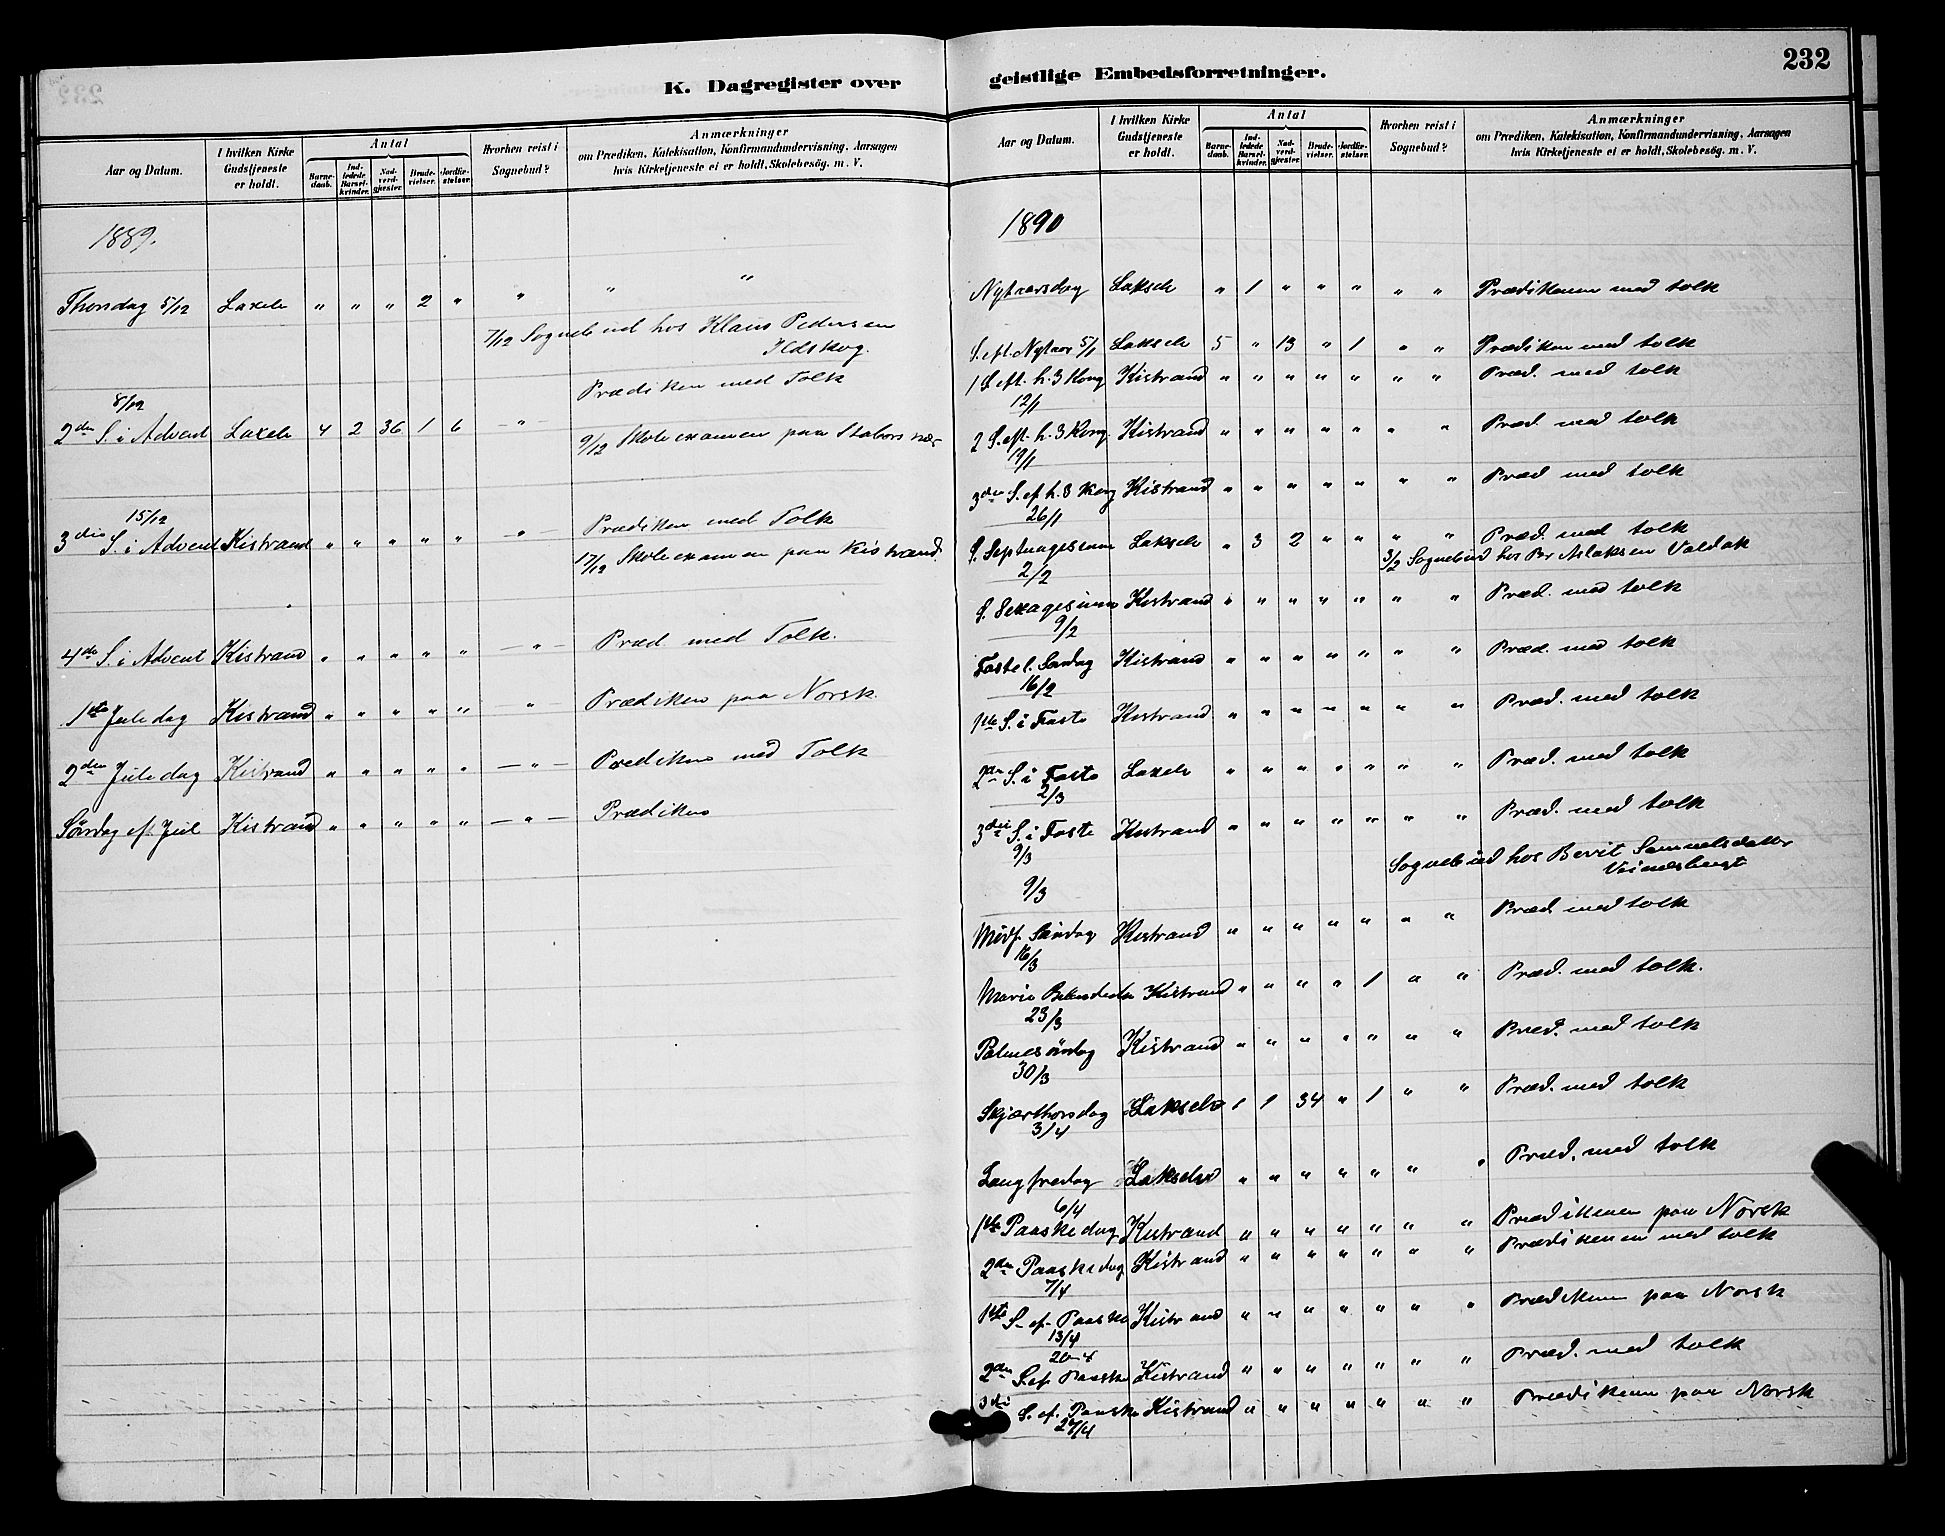 K. Dagregister over
Aar og Datum.
I hvilken Kirke Gudstjeneste er holdt.
Antal
Barnedaab.
Indledede Barselkvinder.
Nadverdgjester
Brudevielser.
Jordfæstelser.
Hvorhen reist i Sognebud?
Anmærkninger
om Prædiken, Katekisation, Konfirmandundervisning, Aarsagen
hvis Kirketjeneste ei er holdt, Skolebesøg. m. V.
1889.
Thorsdag 5/12 Laxelv " " " 2 " " " "
7/12 Sognebud hos Klaus Pedersen
Ildskog.
Prædiken med Tolk
8/12
2den S. i Advent Laxelv 4 2 36 1 6 — " —
9/12 Skoleexamen paa Stabursnæs
15/12
3die S. i Advent Kistrand " " " " " — " — Prædiken med Tolk
17/12 Skoleexamen paa Kistrand.
4de S. i Advent Kistrand " " " " " — " — Præd med Tolk.
1ste Juledag Kistrand " " " " " — " — Prædiken paa Norsk.
2den Juledag Kistrand " " " " " — " — Prædiken med Tolk
Søndag ef. Jul Kistrand " " " " " — " — Prædiken
geistlige Embedsforretninger.
232
Aar og Datum.
I hvilken Kirke Gudstjeneste er holdt.
Antal
Barnedaab.
Indledede Barselkvinder.
Nadverdgjester.
Brudevielser.
Jordfæstelser.
Hvorhen reist i Sognebud?
Anmærkninger
om Prædiken, Katekisation, Konfirmandundervisning, Aarsagen
hvis Kirketjeneste ei er holdt, Skolebesøg. m. V.
1890
Nytaarsdag Lakselv " 1 " " " " " Prædikenen med tolk
S. eft. Nytaar 5/1 Lakselv 5 " 13 " 1 " " Prædiken med tolk
1 S. eft. h. 3 Kong Kistrand " " " " " " " Præd. med tolk
12/1
2 S. eft. h. 3 Kong Kistrand " " " " " " " Præd. med tolk
19/1
3die S. ef. h. 3 Kong Kistrand " " " " " " " Præd med tolk
26/1
S. Septuagesima Lakselv " 3 2 " " " " Præd. med tolk
2/2
3/2 Sognebud hos Per Aslaksen Valdak
S. Sexagesima Kistrand " " " " " " " Præd. med tolk
9/2
Fastel. Søndag Kistrand " " " " " " " Præd. med tolk
16/2
1ste S. i Faste Kistrand " " " " " " " Præd. med tolk
2den S. i Faste Laxelv " " " " " " " Præd. med tolk
2/3
3die S. i Faste Kistrand " " " " " " " Præd. med tolk
9/3
Sognebud hos Berit Samuelsdatter
9/3
Midf. Søndag Kistrand " " " " " " " Præd med tolk
16/3
Maria Kistrand " " " " 1 " " Præd. med tolk.
23/3
Palmesøndag Kistrand " " " " " " " Præd. med tolk
30/3
Skjærthorsdag Lakselv 1 1 34 " 1 " " Præd. med tolk
3/4
Langfredag Lakselv " " " " " " " Præd. med tolk
6/4
1ste Paaskedag Kistrand " " " " " " " Prædikenen paa Norsk
2den Paaskedag Kistrand " " " " " " " Prædikenen med tolk
7/4
1ste S. ef. Paaske Kistrand " " " " " " " Prædikenen paa Norsk
13/4
20-4
2den S. ef. Paaske Kistrand " " " " " " " Præd. med tolk
3die S. ef. Paaske Kistrand " " " " " " " Prædikenen paa Norsk
27/4